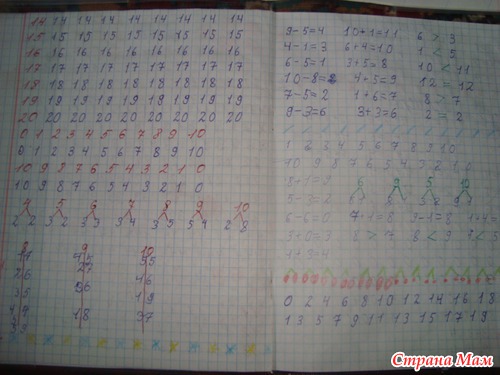 14 14 14 14 14 14 14 14
15 15 15 15 15 15 15 15
16 16 16 16 16 16 16 16
17 17 17 17 17 17 17 17
18 18 18 18 18 18 18 18
19 19 19 19 19 19 19 19
20 20 20 20 20 20 20 20
0 1 2 3 4 5 6 7 8 9 10
0 1 2 3 4 5 6 7 8 9 10
10 9 8 7 6 5 4 3 2 1 0
10 9 8 7 6 5 4 3 2 1 0
4 5 6 7 8 9 10
2 2 3 2 3 3 3 4 3 5 5 4 2 8
8 9 10
26 27
35 36 46
18 19
37
9-5=4 10+1=11 6 > 3
4-1=3 6+4=10 1 < 5
6-5=1 3+5=8 10 < 11
10-8=2 4+5=9 12 = 12
7-5=2 1+6=7 8 > 7
9-3=6 3+3=6 2 = 2
1 2 3 4 5 6 7 8 9 10
10 9 8 7 6 5 4 3 2 1 0
8+1=9 6 9 5 10
5-3=2
6-6=0 7+1=8 9-1=8
3+0=3 8 > 7 8 < 9
0 2 4 6 8 10 12 14 16 18
1 3 5 7 9 11 13 15 17 19
Страна Мам